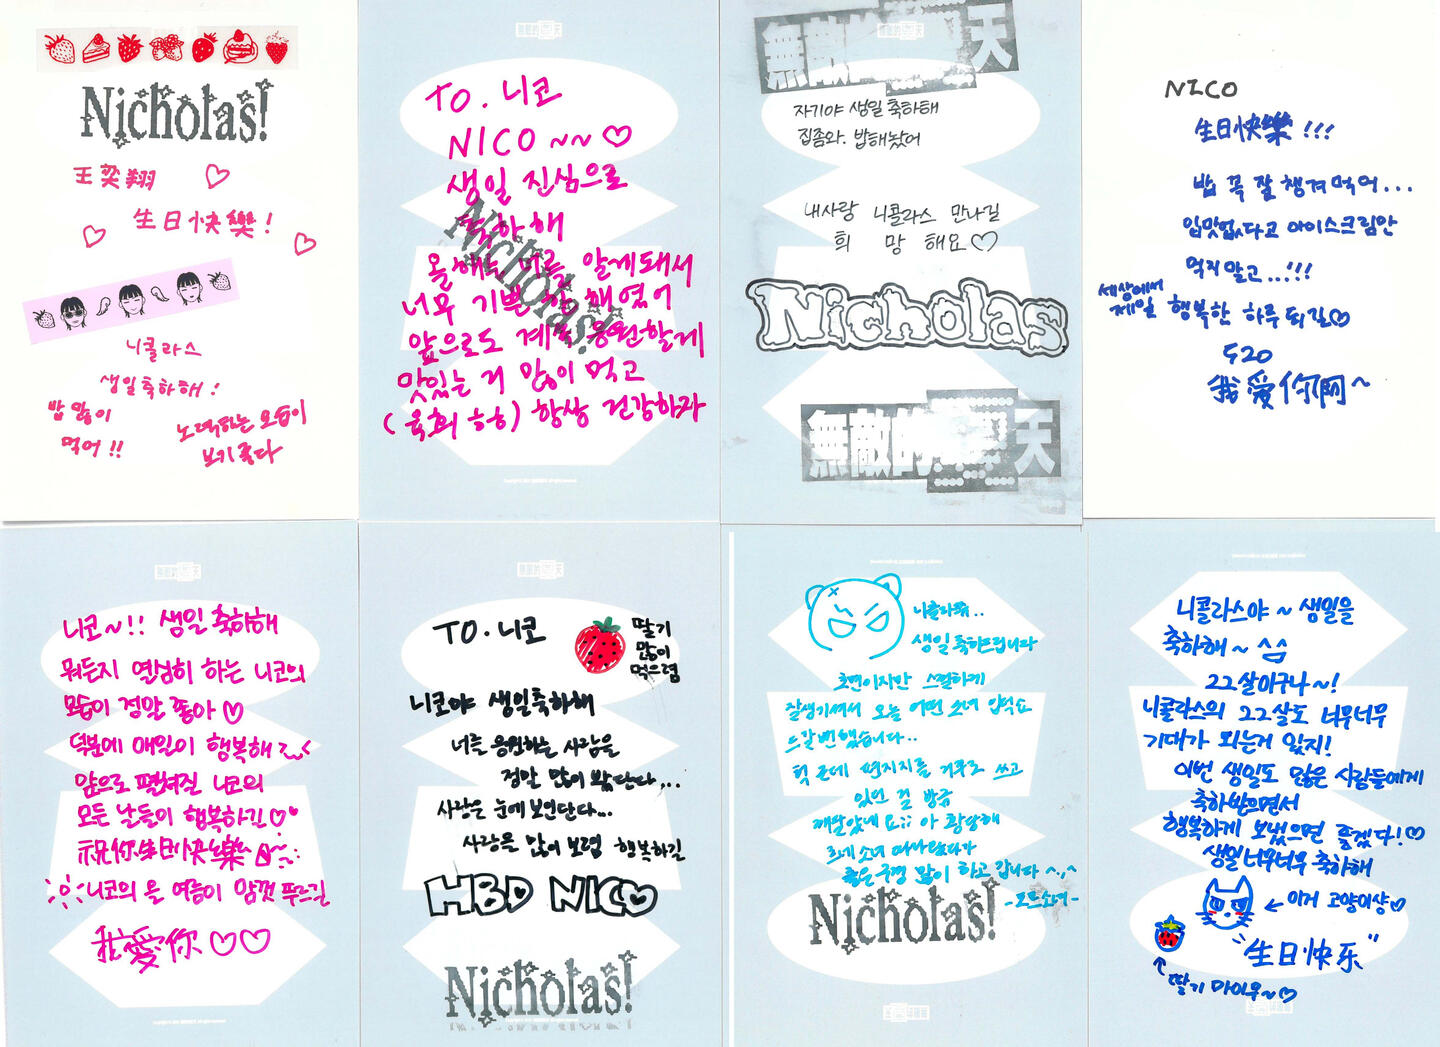 Nicholas!
王奕翔
生日快樂!
니콜라스
생일축하해!
밥 많이
먹어!!
노력하는 모습이
보기 좋다
TO. 니코
NICO ~~♡
생일 진심으로
축하해
올해는 너를 알게돼서
너무 기쁜 한 해였어
앞으로도 계속 응원할게
맛있는 거 많이 먹고
(육회 ㅎㅎ) 항상 건강하자
Nicholas!
無敵的 天
자기야 생일 축하해
집좀와. 밥해놨어
내사랑 니콜라스 만나길
희 망 해요♡
Nicholas
無敵的 天
NICO
生日快樂!!!
밥 꼭 잘 챙겨먹어...
입맛없다고 아이스크림만
먹지말고...!!!
세상에서
제일 행복한 하루 되길♡
520
我愛你啊~
니코~!! 생일 축하해
뭐든지 열심히 하는 니코의
모습이 정말 좋아♡
덕분에 매일이 행복해
앞으로 펼쳐질 니코의
모든 날들이 행복하길♡
祝你生日快樂
니코의 올 여름이 맘껏 푸르길
我愛你♡♡
TO. 니코
딸기
많이
먹으렴
니코야 생일축하해
너를 응원하는 사람은
정말 많이 봤단다...
사랑은 눈에 보인단다...
사랑을 많이 보렴 행복하길
HBD NICO
Nicholas!
니콜라쮸..
생일 축하드립니다
초면이지만 스릴하게
잘생기셔서 오늘 어떤 소녀 입덕쇼
드갈뻔했습니다..
헉 근데 편지지를 거꾸로 쓰고
있던 걸 방금
깨달았네요;; 아 황당해
좋은 구경 많이 하고 갑니다 ^.^
Nicholas!
니콜라스야~ 생일을
축하해~ ^^
22살이구나~!
니콜라스의 22살도 너무너무
기대가 되는거 있지!
이번 생일도 많은 사람들에게
축하받으면서
행복하게 보냈으면 좋겠다!♡
생일너무너무 축하해
← 이거 고양이상♡
"生日快乐"
딸기 마이우~♡